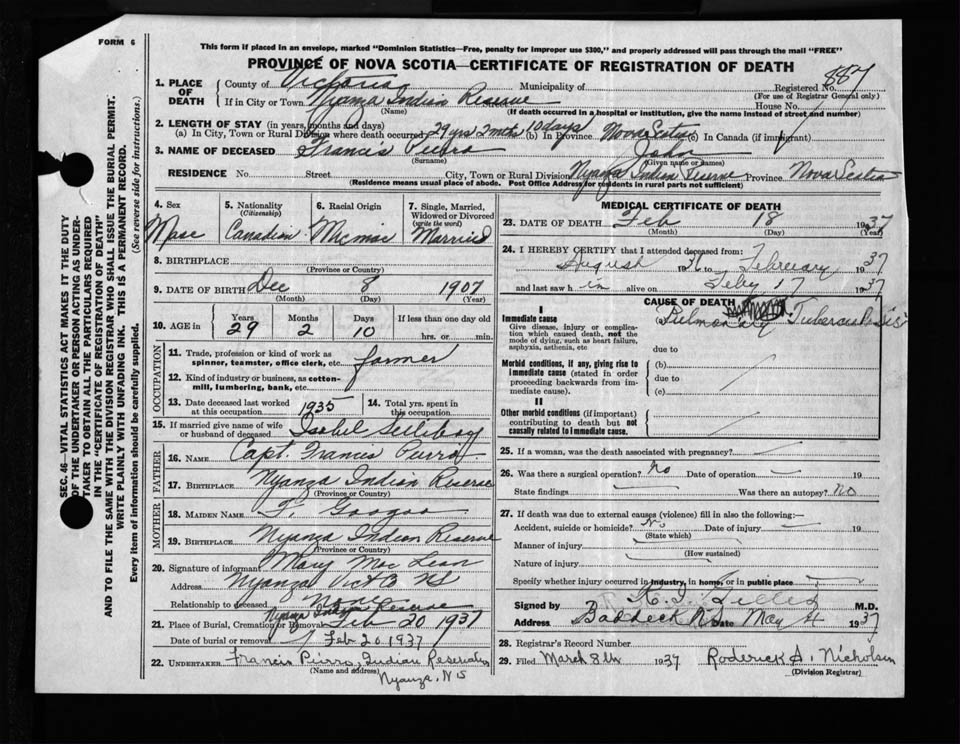 FORM 6
This form if placed in an envelope, marked "Dominion Statistics—Free, penalty for improper use $300," and properly addressed will pass through the mail "FREE"
PROVINCE OF NOVA SCOTIA—CERTIFICATE OF REGISTRATION OF DEATH
SEC. 46—VITAL STATISTICS ACT MAKES IT THE DUTY
OF THE UNDERTAKER OR PERSON ACTING AS UNDER-
TAKER TO OBTAIN ALL THE PARTICULARS REQUIRED
IN THE "CERTIFICATE OF REGISTRATION OF DEATH"
AND TO FILE THE SAME WITH THE DIVISION REGISTRAR WHO SHALL ISSUE THE BURIAL PERMIT.
WRITE PLAINLY WITH UNFADING INK. THIS IS A PERMANENT RECORD.
Every item of information should be carefully supplied. (See reverse side for instructions.)
1. PLACE OF DEATH County of Victoria Municipality of Registered No. 887
(For use of Registrar General only)
If in City or Town Nyanza Indian Reserve House No.
(Name) (If death occurred in a hospital or institution, give the name instead of street and number)
2. LENGTH OF STAY (in years, months and days)
(a) In City, Town or Rural Division where death occurred 29 yrs 2 mths 10 days (b) In Province Nova Scotia (c) In Canada (if immigrant)
3. NAME OF DECEASED Francis Pierro John
(Surname) (Given name or names)
RESIDENCE No. Street City, Town or Rural Division Nyanza Indian Reserve Province Nova Scotia
(Residence means usual place of abode. Post Office Address for residents in rural parts not sufficient)
4. Sex 5. Nationality (Citizenship) 6. Racial Origin 7. Single, Married, Widowed or Divorced (write the word)
Male Canadian Micmac Married
8. BIRTHPLACE
(Province or Country)
9. DATE OF BIRTH Dec 8 1907
(Month) (Day) (Year)
10. AGE in Years Months Days If less than one day old
29 2 10 hrs. or min.
OCCUPATION
11. Trade, profession or kind of work as spinner, teamster, office clerk, etc. farmer
12. Kind of industry or business, as cotton-mill, lumbering, bank, etc.
13. Date deceased last worked at this occupation 1935 14. Total yrs. spent in this occupation
15. If married give name of wife or husband of deceased Isabel
FATHER
16. NAME Capt. Francis Pierro
17. BIRTHPLACE Nyanza Indian Reserve
(Province or Country)
MOTHER
18. MAIDEN NAME F. Googoo
19. BIRTHPLACE Nyanza Indian Reserve
(Province or Country)
20. Signature of informant Mary Mac Lean
Address Nyanza Vict Co NS
Relationship to deceased None
Nyanza Indian Reserve
21. Place of Burial, Cremation or Removal Feb 20 1937
Date of burial or removal Feb 20 1937
22. UNDERTAKER Francis Pierro, Indian Reservation
(Name and address) Nyanza, N S
MEDICAL CERTIFICATE OF DEATH
23. DATE OF DEATH Feb 18 1937
(Month) (Day) (Year)
24. I HEREBY CERTIFY that I attended deceased from:
August 1936 to February 1937
and last saw him alive on Feby 17 1937
CAUSE OF DEATH
I
Immediate cause Pulmonary Tuberculosis
Give disease, injury or complication which caused death, not the mode of dying, such as heart failure, asphyxia, asthenia, etc
due to
Morbid conditions, if any, giving rise to immediate cause (stated in order proceeding backwards from immediate cause).
(b)
due to
(c)
II
Other morbid conditions (if important) contributing to death but not causally related to immediate cause.
25. If a woman, was the death associated with pregnancy?
26. Was there a surgical operation? No Date of operation 19
State findings Was there an autopsy? No
27. If death was due to external causes (violence) fill in also the following:—
Accident, suicide or homicide? No Date of injury 19
(State which)
Manner of injury
(How sustained)
Nature of injury
Specify whether injury occurred in industry, in home, or in public place
Signed by M.D.
Address Baddeck N.S. Date May 4 1937
28. Registrar's Record Number
29. Filed March 8th 1937 Roderick A. Nicholson
(Division Registrar)